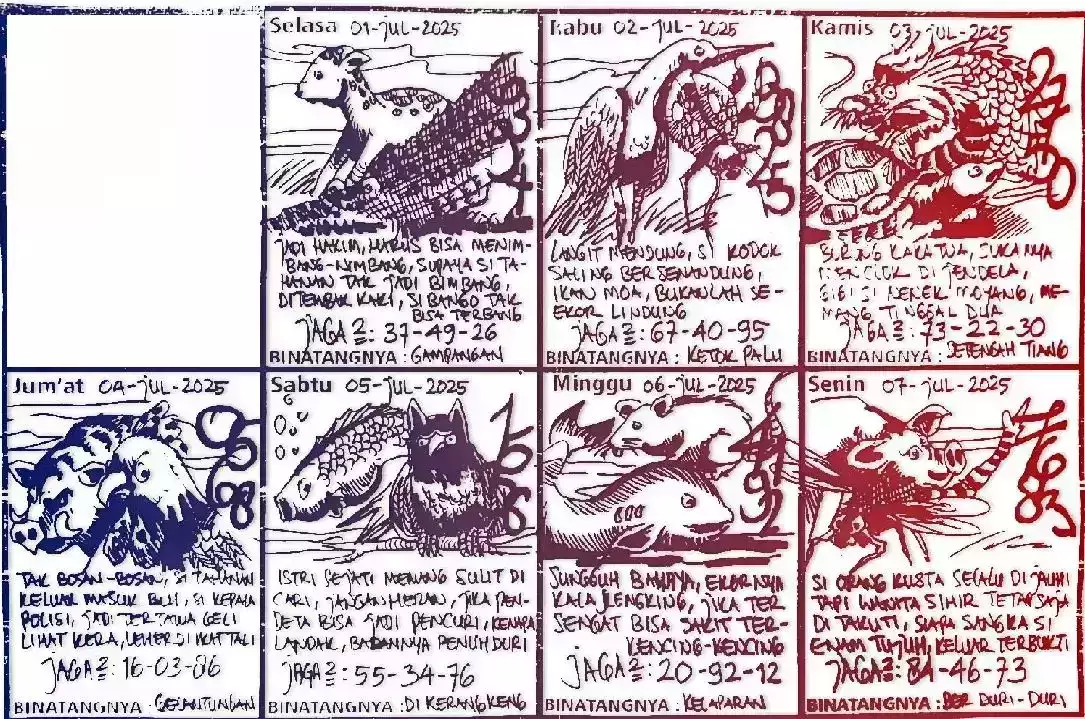 Selasa 01-jUL-2025
jADI HAKIM, HARUS BISA MENIM-
BANG-NIMBANG, SUPAYA SI TA-
HANAN TAK JADI BIMBANG,
DITEMBAK KAKI, SI BANGO TAK
BISA TERBANG
jAGA2: 37-49-26
BINATANGNYA : GAMPANGAN
Rabu 02-jUL-2025
LANGIT MENDUNG, SI KODOK
SALING BERSENANDUNG,
IKAN MOA, BUKANLAH SE-
EKOR LINDUNG
jAGA2: 67-40-95
BINATANGNYA : KETOK PALU
Kamis 03-jUL-2025
BURUNG KAKATUA, SUKANYA
MENCLOK DI JENDELA,
GIGI SI NENEK MOYANG, ME-
MANG TINGGAL DUA
jAGA2: 73-22-30
BINATANGNYA : SETENGAH TIANG
Jum'at 04-jUL-2025
TAK BOSAN-BOSAN, SI TAHANAN
KELUAR MASUK BUI, SI KEPALA
POLISI, JADI TERTAWA GELI
LIHAT KERA, LEHER DI IKAT TALI
jAGA2: 16-03-86
BINATANGNYA : GELANTUNGAN
Sabtu 05-jUL-2025
ISTRI SEJATI MEMANG SULIT DI
CARI, JANGAN HERAN, JIKA PEN-
DETA BISA JADI PENCURI, KENAPA
LANDAK, BADANNYA PENUH DURI
jAGA2: 55-34-76
BINATANGNYA : DI KERANGKENG
Minggu 06-jUL-2025
SUNGGUH BAHAYA, EKORNYA
KALA JENGKING, JIKA TER
SENGAT BISA SAKIT TER-
KENCING-KENCING
jAGA2: 20-92-12
BINATANGNYA : KELAPARAN
Senin 07-jUL-2025
SI ORANG KUSTA SELALU DI JAUHI
TAPI WANITA SIHIR TETAP SAJA
DI TAKUTI, SIAPA SANGKA SI
ENAM TUJUH, KELUAR TERBUKTI
jAGA2: 84-46-73
BINATANGNYA : BER DURI-DURI